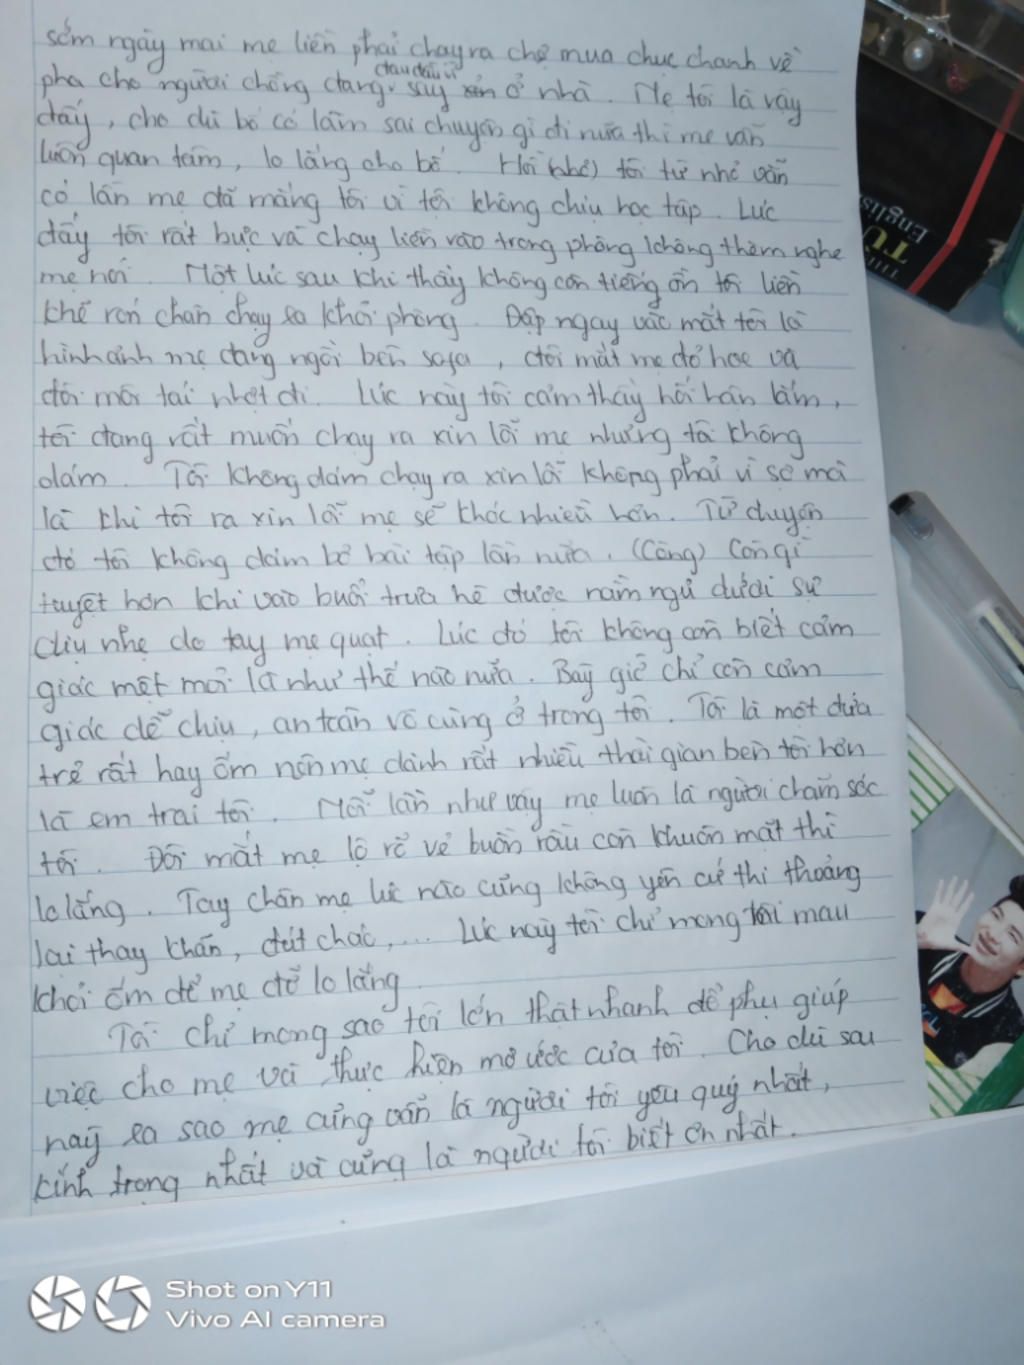 sớm ngày mai mẹ liền phải chạy ra chợ mua chục chanh về
pha cho người chồng đang đau đầu vì say ở nhà. Mẹ tôi là vậy
đấy, cho dù bố có làm sai chuyện gì đi nữa thì mẹ vẫn
luôn quan tâm, lo lắng cho bố. Hồi (nhỏ) tôi từ nhỏ vẫn
có lần mẹ đã mắng tôi vì tội không chịu học tập. Lúc
đấy tôi rất bực và chạy liền vào trong phòng không thèm nghe
mẹ nói. Một lúc sau khi thấy không còn tiếng ồn tôi liền
khẽ rón chân chạy ra khỏi phòng. Đập ngay vào mắt tôi là
hình ảnh mẹ đang ngồi bên sofa, đôi mắt mẹ đỏ hoe và
đôi môi tái nhợt đi. Lúc này tôi cảm thấy hối hận lắm,
tôi đang rất muốn chạy ra xin lỗi mẹ nhưng tôi không
dám. Tôi không dám chạy ra xin lỗi không phải vì sợ mà
là khi tôi ra xin lỗi mẹ sẽ khóc nhiều hơn. Từ chuyện
đó tôi không dám bỏ bài tập lần nữa. (Càng) Còn gì
tuyệt hơn khi vào buổi trưa hè được nằm ngủ dưới sự
dịu nhẹ do tay mẹ quạt. Lúc đó tôi không còn biết cảm
giác mệt mỏi là như thế nào nữa. Bây giờ chỉ còn cảm
giác dễ chịu, an toàn vô cùng ở trong tôi. Tôi là một đứa
trẻ rất hay ốm nên mẹ dành rất nhiều thời gian bên tôi hơn
là em trai tôi. Mỗi lần như vậy mẹ luôn là người chăm sóc
tôi. Đôi mắt mẹ lộ rõ vẻ buồn rầu còn khuôn mặt thì
lo lắng. Tay chân mẹ lúc nào cũng không yên cứ thi thoảng
lại thay khăn, đút cháo,... Lúc này tôi chỉ mong tôi mau
khỏi ốm để mẹ đỡ lo lắng.
Tôi chỉ mong sao tôi lớn thật nhanh để phụ giúp
việc cho mẹ và thực hiện mơ ước của tôi. Cho dù sau
này ra sao mẹ cũng vẫn là người tôi yêu quý nhất,
kính trọng nhất và cũng là người tôi biết ơn nhất.
English
TỪ
Shot on Y11
Vivo AI camera